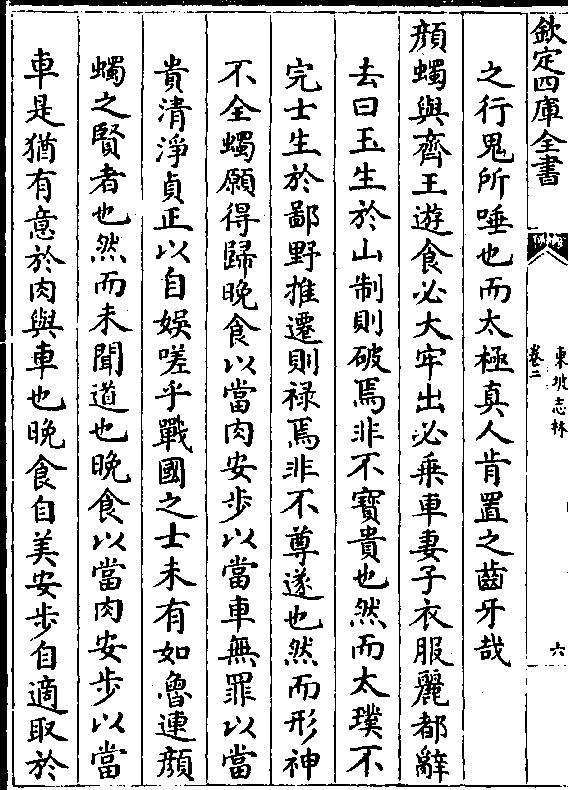 欽定四庫全書
東坡志林
卷二
六
之行鬼所唾也而太極真人肯置之齒牙哉
顔蠋與齊王遊食必大牢出必乗車妻子衣服麗都辭
去曰玉生於山制則破焉非不寳貴也然而太璞不
完士生於鄙野推遷則禄焉非不尊遂也然而形神
不全蠋願得歸晩食以當肉安步以當車無罪以當
貴清淨貞正以自娛嗟乎戰國之士未有如魯連顔
蠋之賢者也然而未聞道也晩食以當肉安步以當
車是猶有意於肉與車也晩食自美安步自適取於